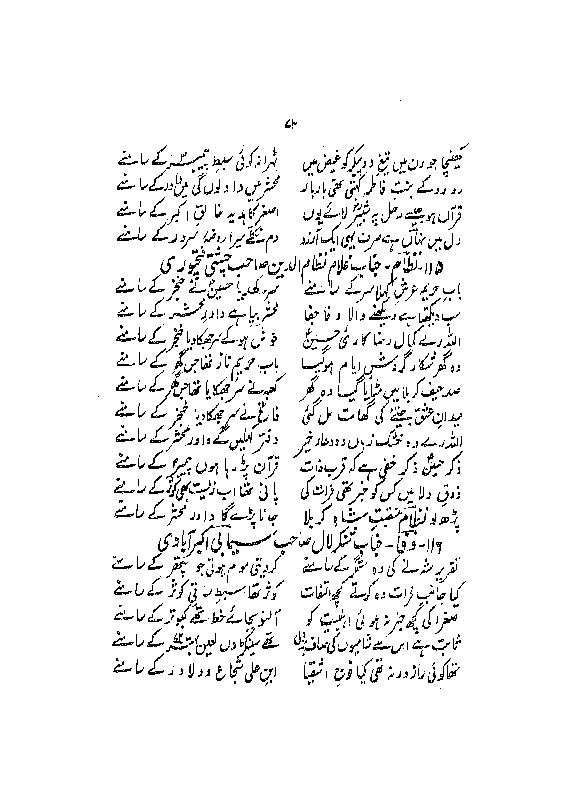 ۷۳
کھینچا جو رن میں تیغ دو پیکر کو غیض میں ٹہرا نہ کوئی سبط پیمبر کے سامنے
رو رو کے بنت فاطمہ کہتی تھی بار بار محشر میں داد لوں گی میں داور کے سامنے
قرآں ہو جیسے رحل پہ شبیر لائے یوں اصغر کا ہدیہ خالق اکبر کے سامنے
دل میں نہاں ہے صرف یہی ایک آرزو دم نکلے میرا روضۂ سرور کے سامنے
۱۱۵۔ نظام۔ جناب غلام نظام الدین صاحب چشتی فتحپوری
باب حریم عرش کھلا سر کے سامنے سر رکھدیا حسین نے خنجر کے سامنے
سب دیکھتا ہے دیکھنے والا وفا جفا محشر بپا ہے داور محشر کے سامنے
اللہ رے کمال رضا کاری حسین خوش ہو کے سر جھکا دیا خنجر کے سامنے
وہ گھر شکار گردش ایام ہو گیا باب حریم ناز تھا جس گھر کے سامنے
صد حیف کربلا میں مٹایا گیا وہ گھر کعبہ نے سر جھکایا تھا جس گھر کے سامنے
میدان عشق جیتنے کی گھات مل گئی فاتح نے سر جھکا دیا خنجر کے سامنے
اللہ رے وہ خشک زباں وہ دعائے خیر دفتر کھلیں گے داور محشر کے سامنے
ذکر حسین ذکر خفی ہے کہ قرب ذات قرآن پڑھ رہا ہوں پیمبر کے سامنے
ذوق ولا میں کس کو خبر تھی فرات کی پانی تھا اب زیست بھی کوثر کے سامنے
پڑھ لو نظام منقبت شاہ کربلا جانا پڑے گا داور محشر کے سامنے
۱۱۶۔ وفا۔ جناب شنکر لال صاحب سیمابی اکبر آبادی
تقریر شہ نے کی وہ ستمگر کے سامنے کر دیتی موم ہوتی جو پتھر کے سامنے
کیا جانب فرات وہ کرتے کچھ التفات کوثر تھا سبط ساقی کوثر کے سامنے
صغرا کی کچھ خبر نہ ہوئی اہلبیت کو آنسو بجائے خط تھے کبوتر کے سامنے
ثابت ہے اس سے شامیوں کی صاف بزدلی تھے سیکڑوں لعین بہتر کے سامنے
تھا کوئی راز ورنہ تھی کیا فوج اشقیا ابن علی شجاع و دلاور کے سامنے